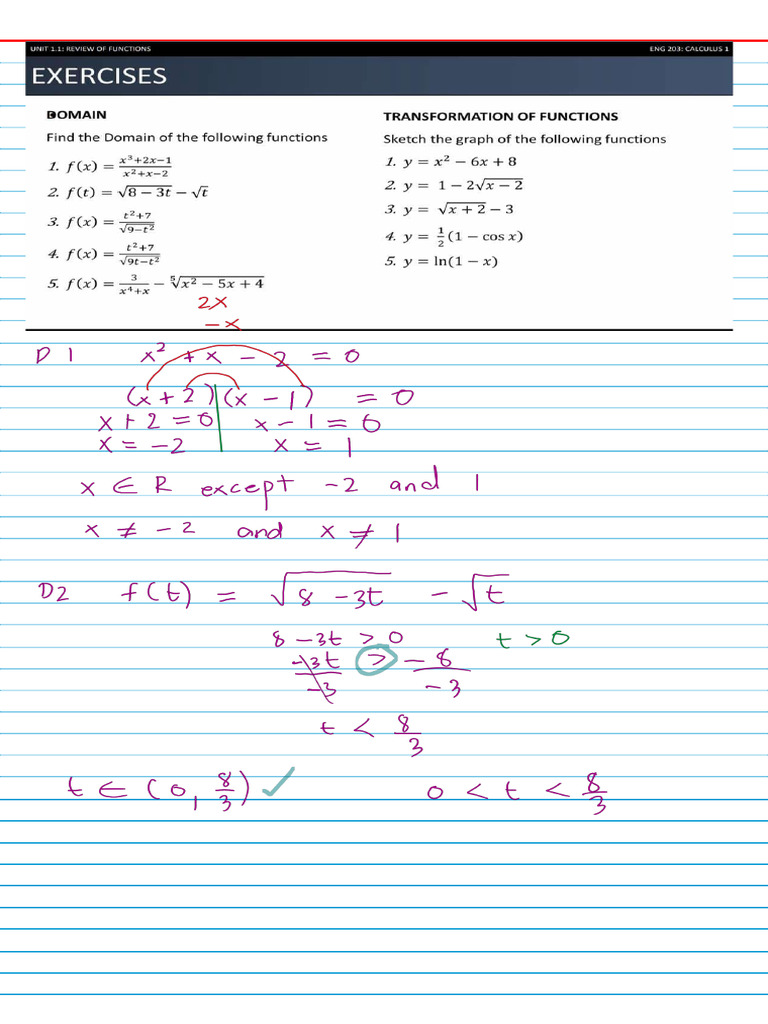 UNIT 1.1: REVIEW OF FUNCTIONS ENG 203: CALCULUS 1
EXERCISES
DOMAIN
Find the Domain of the following functions
1. f(x) = (x³+2x−1)/(x²+x−2)
2. f(t) = √(8 − 3t) − √t
3. f(x) = (t²+7)/√(9−t²)
4. f(x) = (t²+7)/√(9t−t²)
5. f(x) = 3/(x⁴+x) − ⁵√(x² − 5x + 4)
TRANSFORMATION OF FUNCTIONS
Sketch the graph of the following functions
1. y = x² − 6x + 8
2. y = 1 − 2√(x − 2)
3. y = √(x + 2) − 3
4. y = 1/2 (1 − cos x)
5. y = ln(1 − x)
2x
−x
D 1 x² + x − 2 = 0
(x + 2)(x − 1) = 0
x + 2 = 0 x − 1 = 0
x = −2 x = 1
x ∈ R except −2 and 1
x ≠ −2 and x ≠ 1
D2 f(t) = √(8 − 3t) − √t
8 − 3t > 0 t > 0
−3t/−3 > −8/−3
t < 8/3
t ∈ (0, 8/3) ✓ 0 < t < 8/3